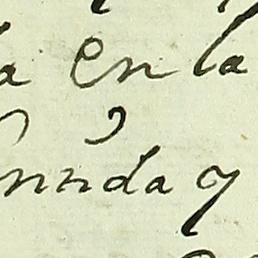 a en la
nnda y